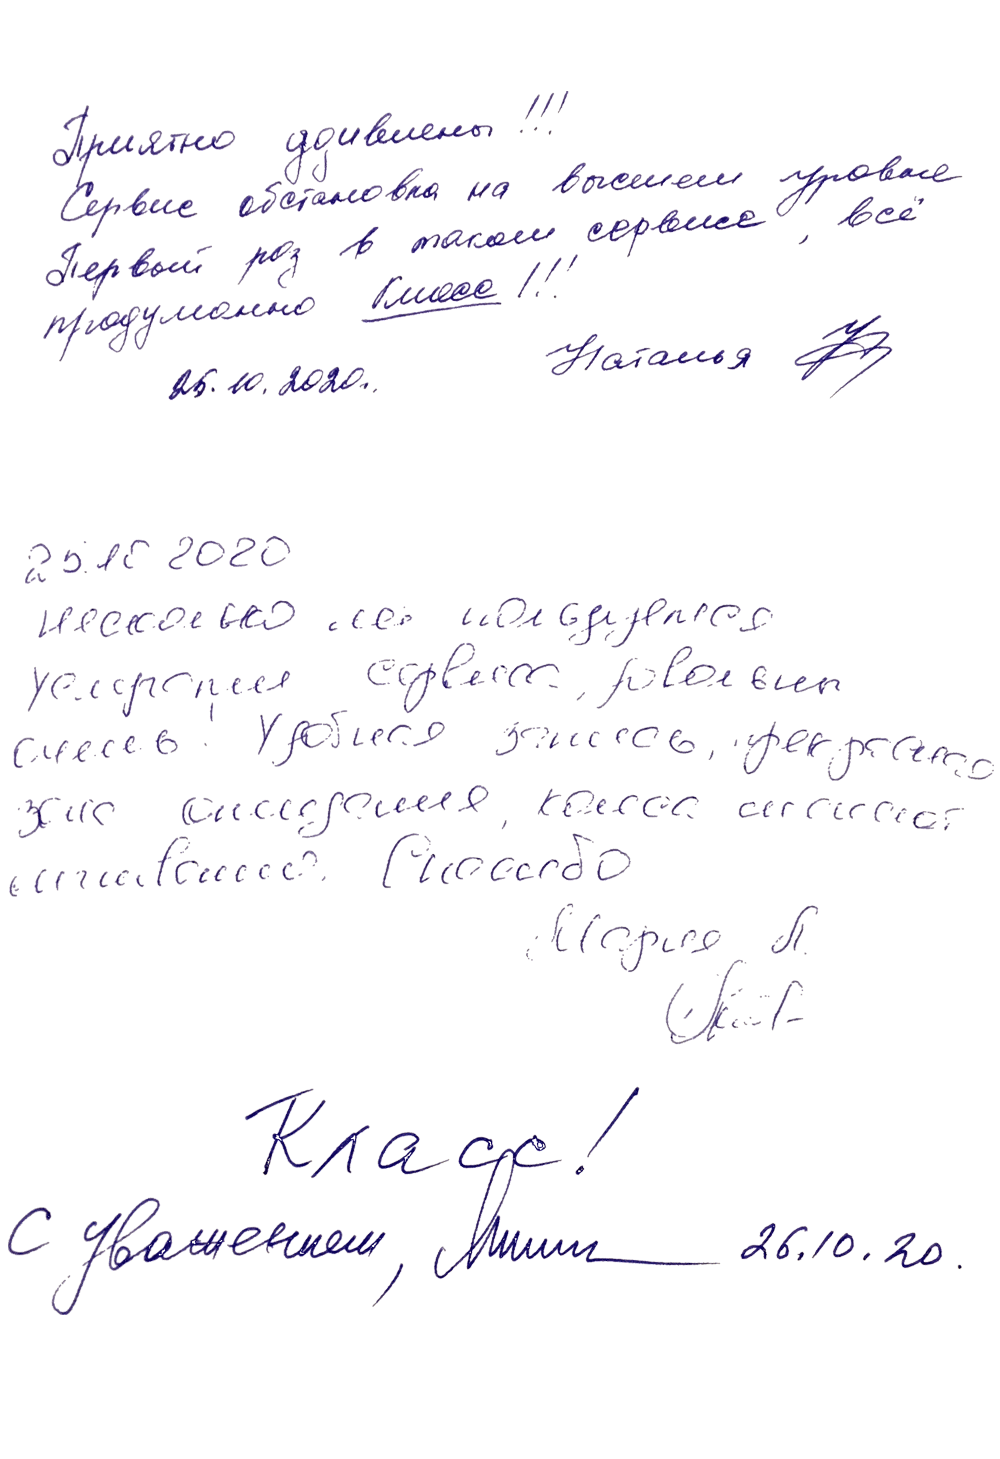 Приятно удивлены!!!
Сервис обстановка на высшем уровне
Первый раз в таком сервисе, всё
продуманно Класс!!!
25.10.2020г.
Наталья
25.10 2020
Несколько лет пользуемся
услугами сервиса, довольны
очень! Удобная запись, прекрасная
зона ожидания, класса
Спасибо
Мария Л.
Класс!
С уважением, 26.10.20.